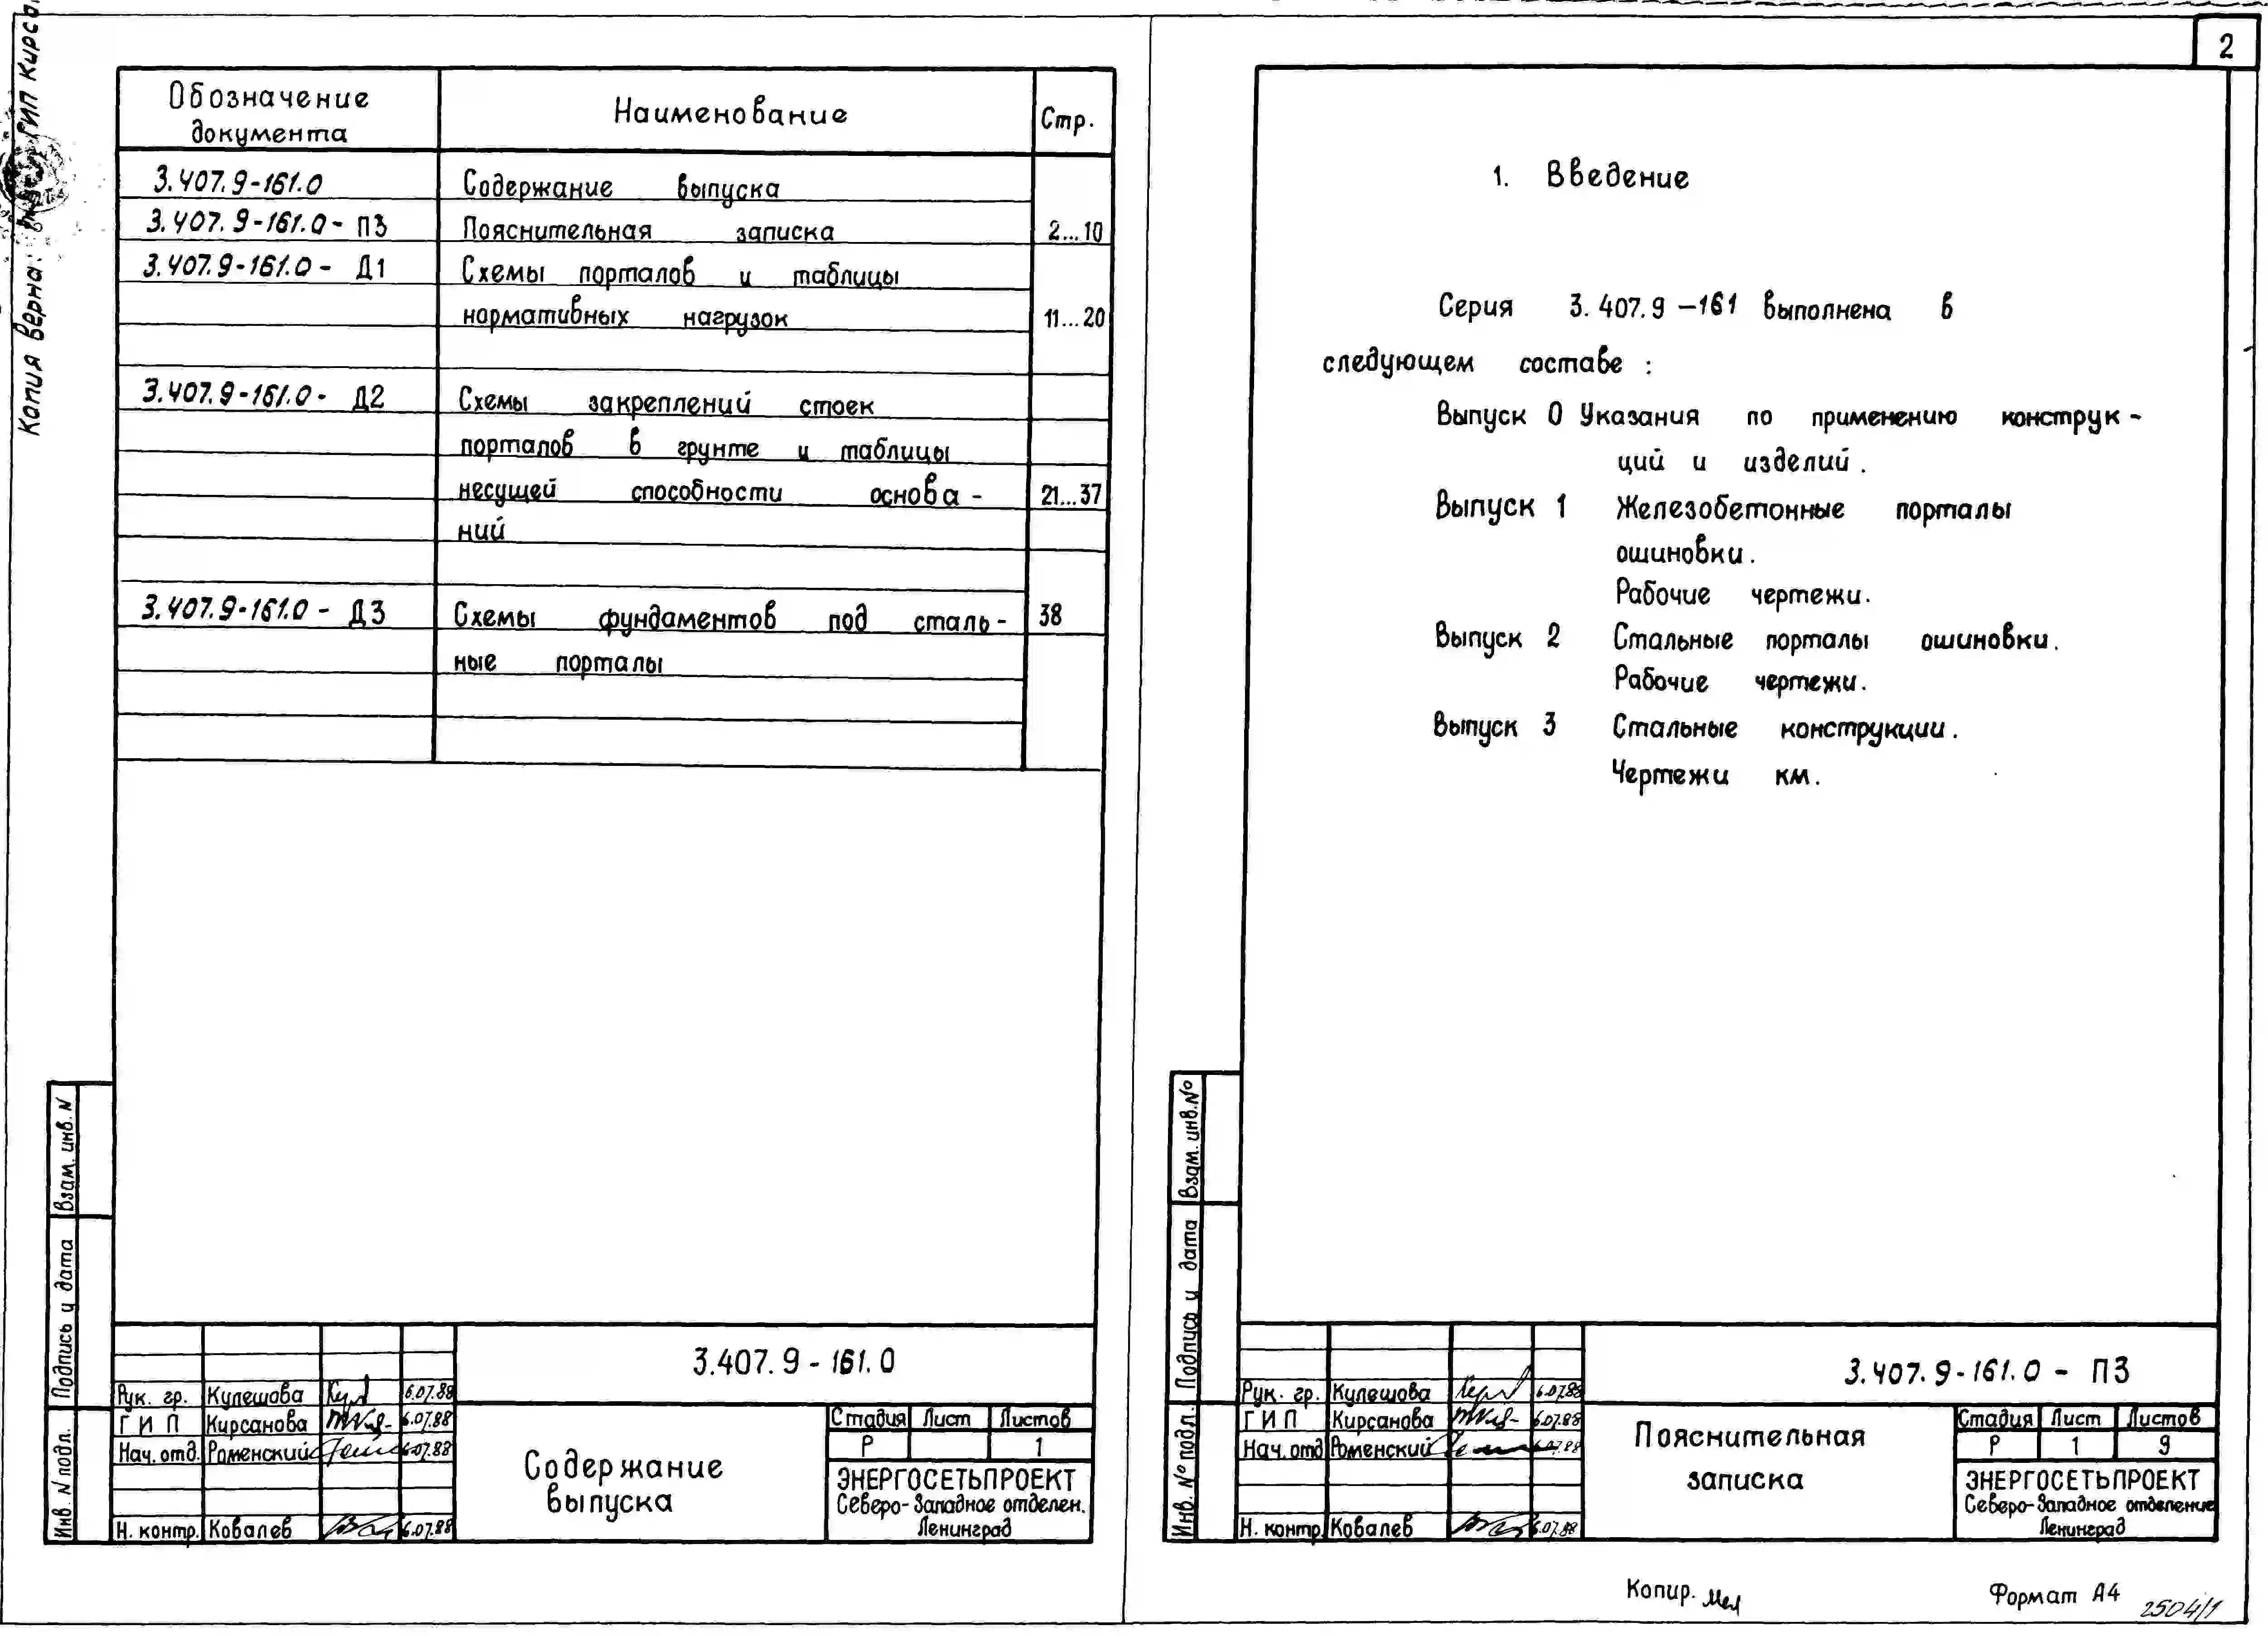 2
Копия верна: ГИП Кирса
Обозначение документа Наименование Стр.
3.407.9-161.0 Содержание выпуска
3.407.9-161.0- ПЗ Пояснительная записка 2...10
3.407.9-161.0- Д1 Схемы порталов и таблицы
нормативных нагрузок 11...20
3.407.9-161.0- Д2 Схемы закреплений стоек
порталов в грунте и таблицы
несущей способности основа- 21...37
ний
3.407.9-161.0- Д3 Схемы фундаментов под сталь- 38
ные порталы
Взам. инв. N
Подпись и дата
Инв. N подл.
3.407.9-161.0
Рук. гр. Кулешова 6.07.88
ГИП Кирсанова 6.07.88
Нач. отд. Роменский 6.07.88
Н. контр. Ковалев 6.07.88
Содержание
выпуска
Стадия Лист Листов
Р 1
ЭНЕРГОСЕТЬПРОЕКТ
Северо-Западное отделен.
Ленинград
1. Введение
Серия 3.407.9-161 выполнена в
следующем составе :
Выпуск 0 Указания по применению конструк-
ций и изделий.
Выпуск 1 Железобетонные порталы
ошиновки.
Рабочие чертежи.
Выпуск 2 Стальные порталы ошиновки.
Рабочие чертежи.
Выпуск 3 Стальные конструкции.
Чертежи км.
Взам. инв. №
Подпись и дата
Инв. № подл.
3.407.9-161.0 - ПЗ
Рук. гр. Кулешова 6.07.88
ГИП Кирсанова 6.07.88
Нач. отд Роменский 6.07.88
Н. контр. Ковалев 6.07.88
Пояснительная
записка
Стадия Лист Листов
Р 1 9
ЭНЕРГОСЕТЬПРОЕКТ
Северо-Западное отделение
Ленинград
Копир. Формат А4
2504/1